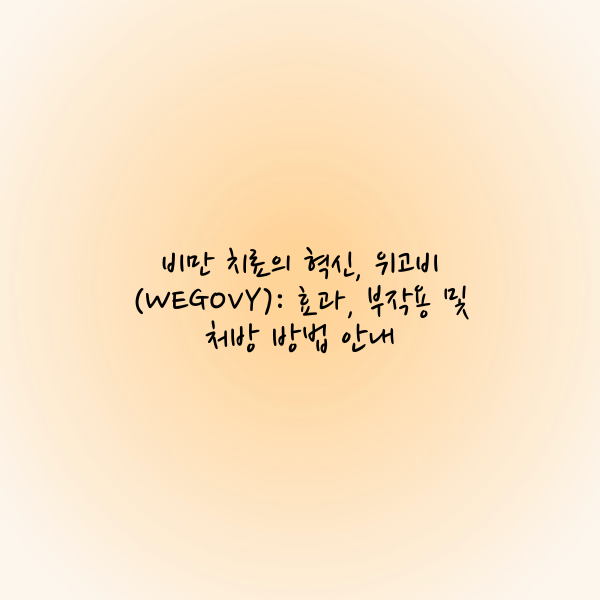 비만 치료의 혁신, 위고비
(WEGOVY): 효과, 부작용 및
처방 방법 안내